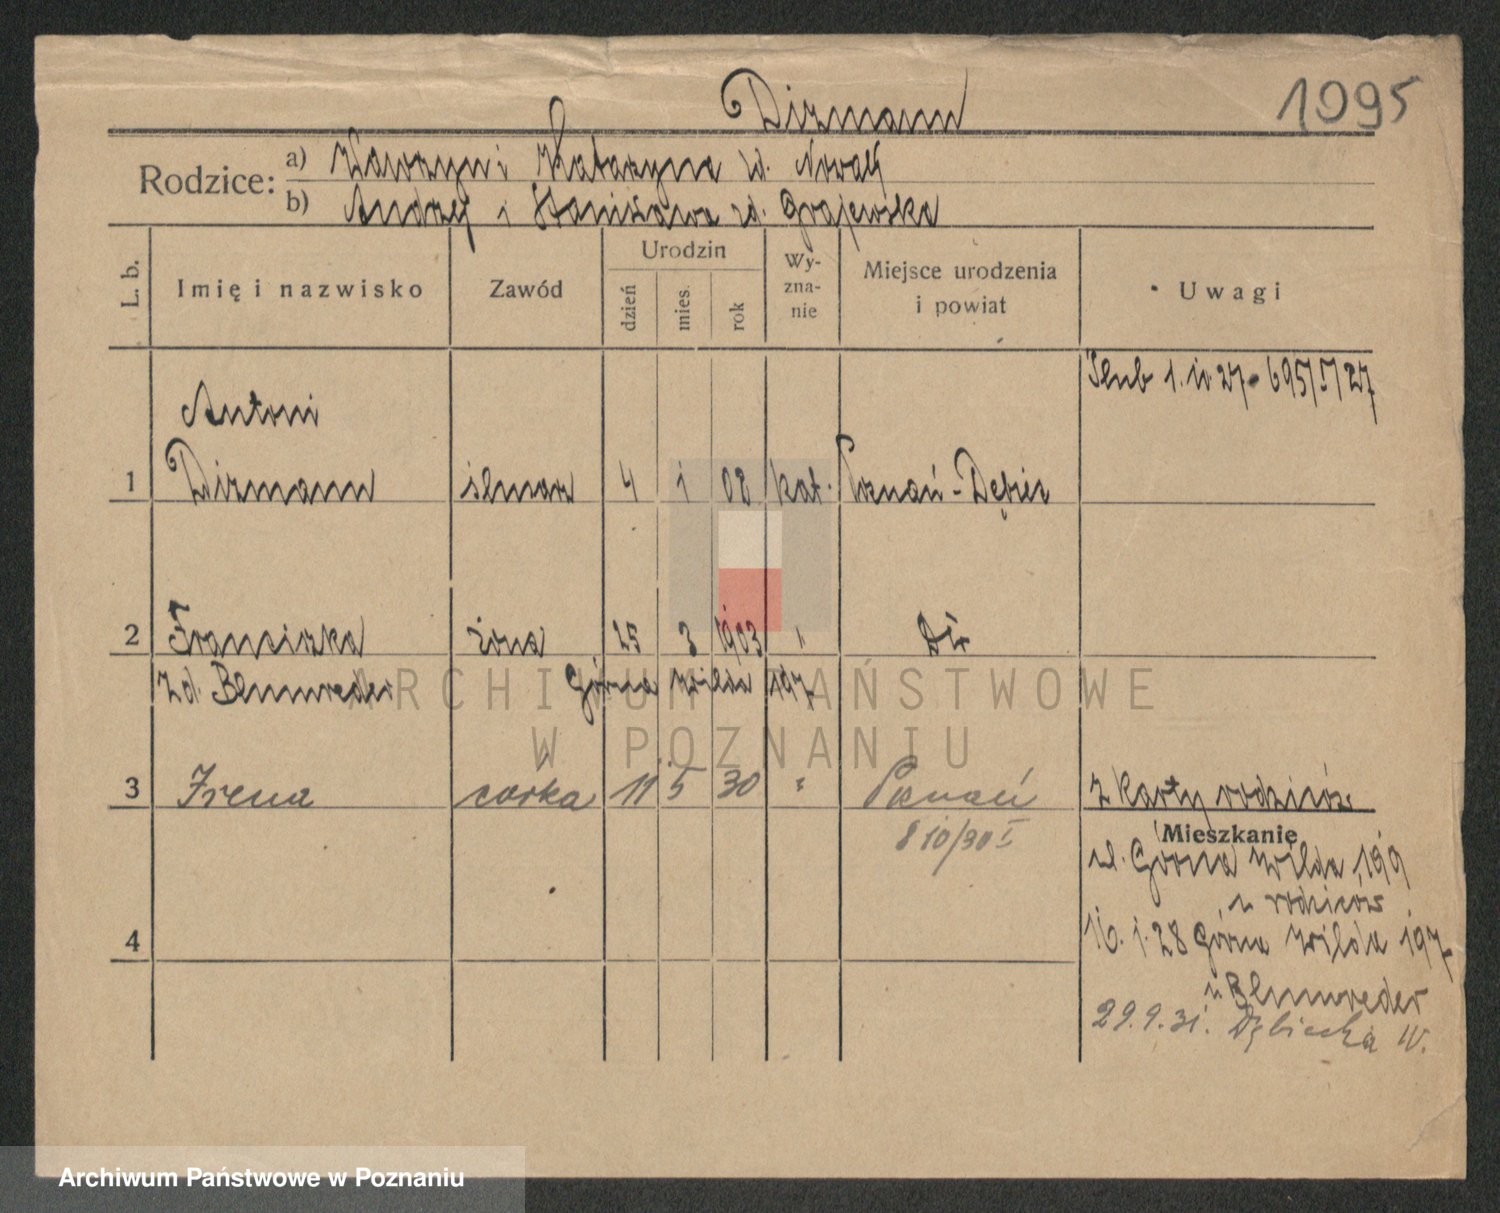 Dirmann
1095
Rodzice: a) Wawrzyn i Katarzyna zd. Nowak
b) Andrzej i Stanisława zd. Grajewska
L. b.
Imię i nazwisko
Zawód
Urodzin
dzień
mies.
rok
Wy-
zna-
nie
Miejsce urodzenia
i powiat
Uwagi
Ślub 1. 27. 695/ /27
Antoni
1 Dirmann ślusarz 4 1 08 kat. Poznań-Dębiec
2 Franciszka żona 25 3 1903 "
zd. Blumreder Górna Wilda 197
ARCHIWUM PAŃSTWOWE
W POZNANIU
3 Irena córka 11 5 30 " Poznań z karty rodziców
8 10/30 I
Mieszkanie
ul. Górna Wilda 199
u rodziców
16. 1. 28 Górna Wilda 197
u Blumreder
29.9.31. Dębiecka IV.
4
Archiwum Państwowe w Poznaniu